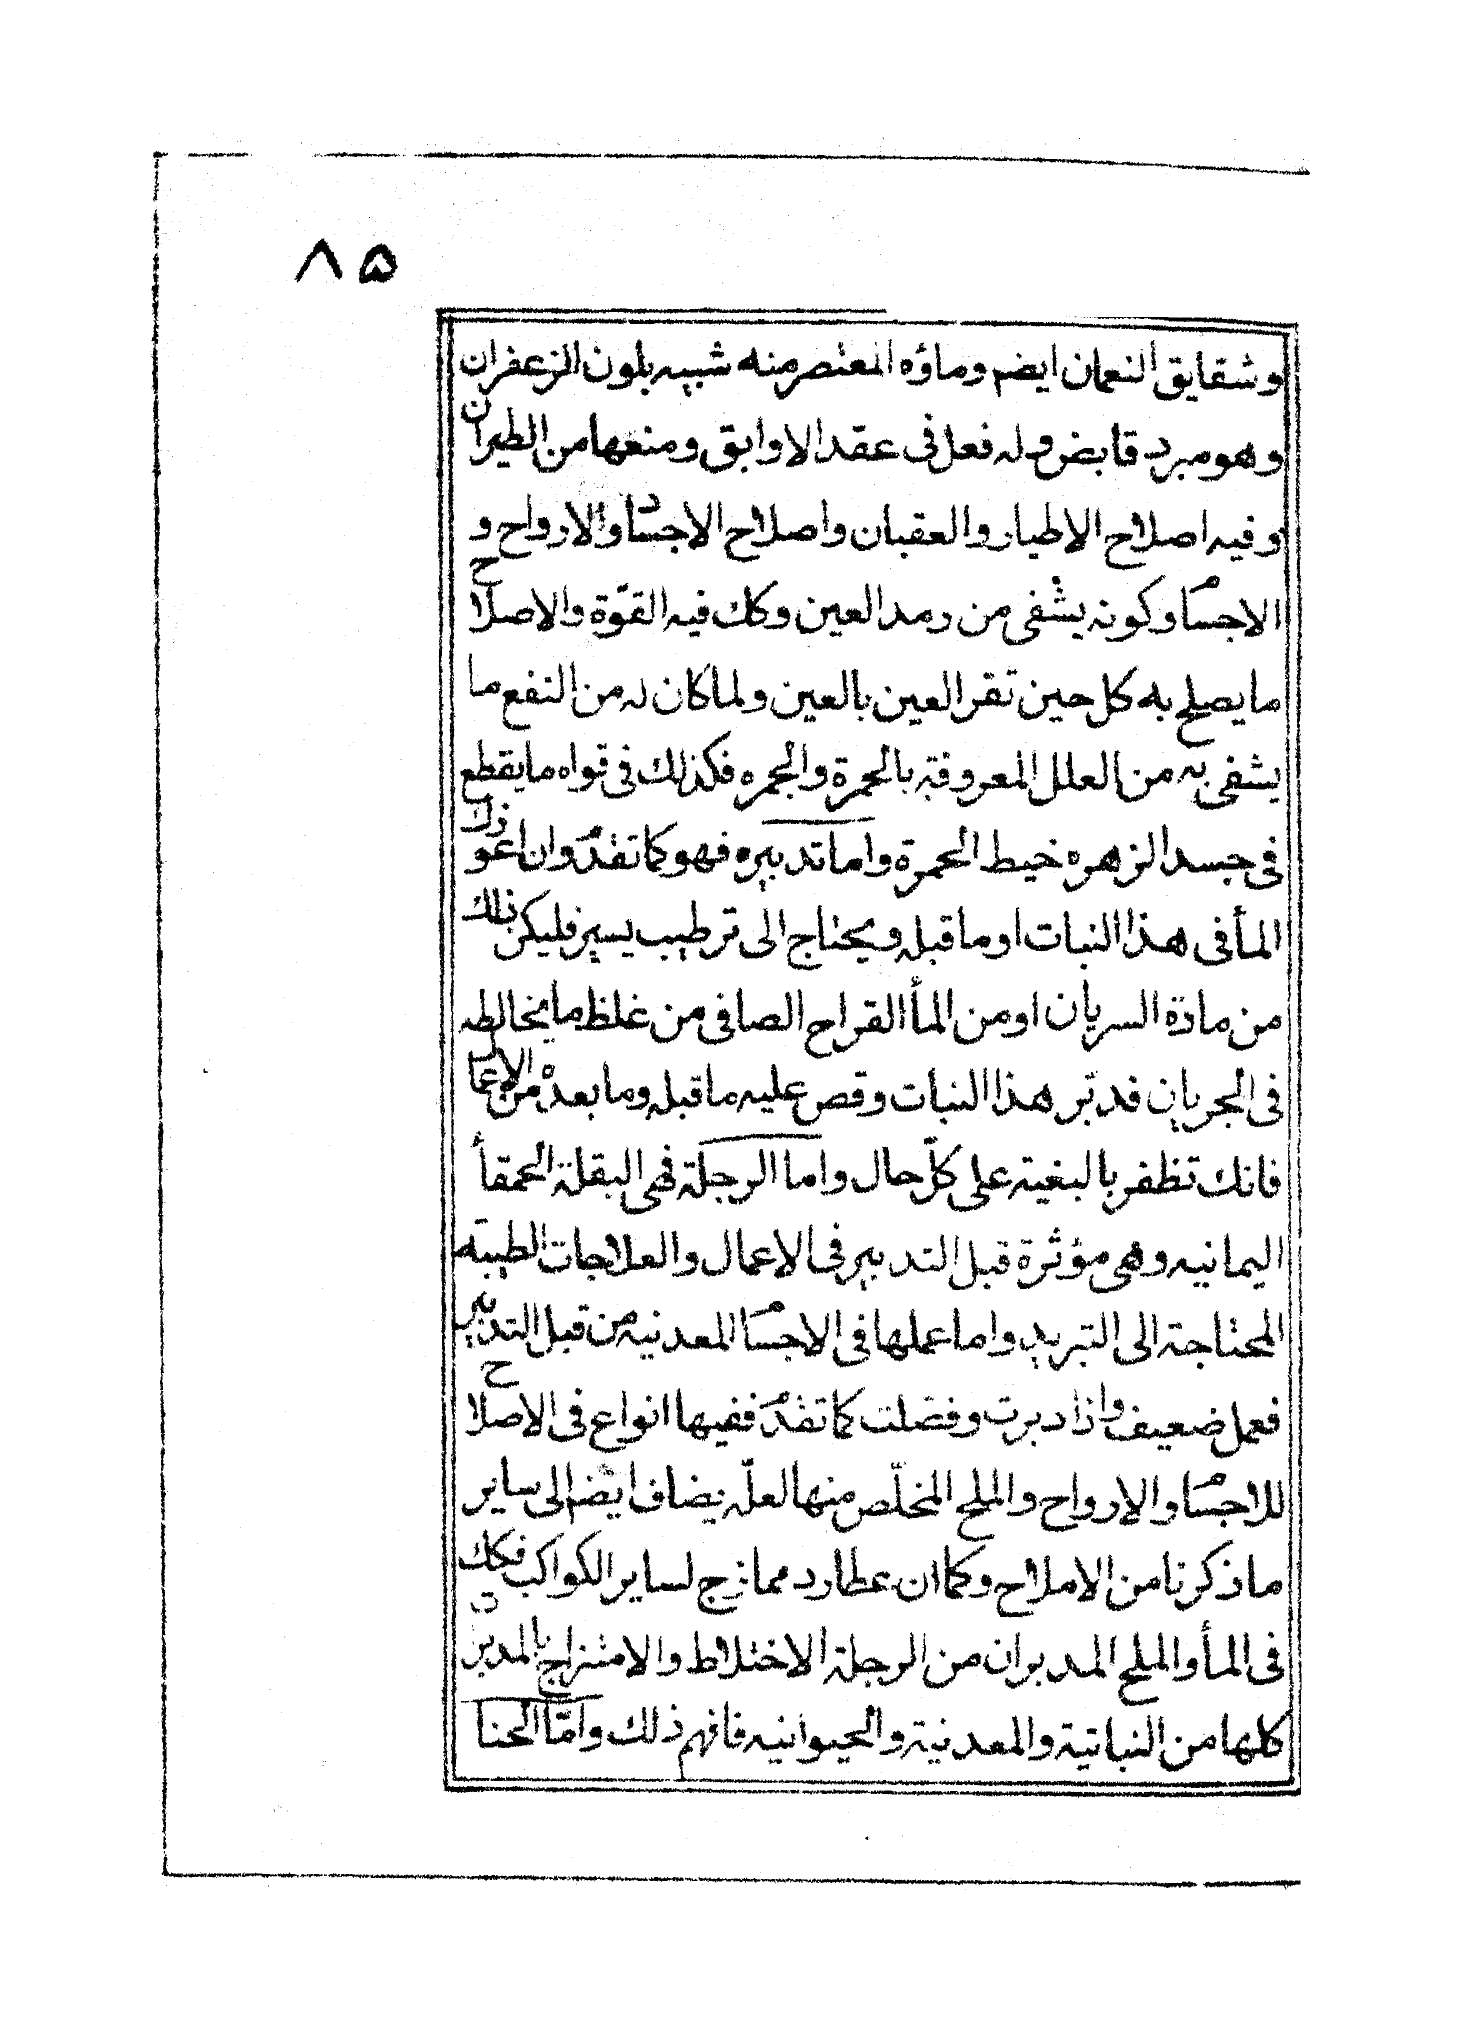 ۸۵
وشقايق النعمان ايضم وماؤه المعتصر منه شبيه بلون الزعفران
وهو مبرد قابض وله فعل فى عقد الاوابق ومنعها من الطيران
وفيه اصلاح الاطيار والعقبان واصلاح الاجساد والارواح و
الاجسام وكونه يشفى من رمد العين وكك فيه القوّة والاصلاح
ما يصلح به كل حين تقر العين بالعين ولما كان له من النفع ما
يشفى به من العلل المعروفة بالحمرة والجمره فكذلك فى قواه ما يقطع
فى جسد الزهره خيط الحمرة واما تدبيره فهو كما تقدم وان اعوذك
المأ فى هذا النبات او ما قبله ويحتاج الى ترطيب يسير فليكن ذلك
من مادة السريان او من المأ القراح الصافى من غلظ ما يخالطه
فى الجريان فدبّر هذا النبات وقص عليه ما قبله وما بعده من الاعمال
فانك تظفر بالبغية على كلّ حال واما الرجلة فهى البقلة الحمقأ
اليمانيه وهى مؤثرة قبل التدبير فى الاعمال والعلاجات الطبيّة
المحتاجة الى التبريد واما عملها فى الاجسام المعدنيه من قبل التدبير
فعمل ضعيف واذا دبرت وفضلت كما تقدم ففيها انواع فى الاصلاح
للاجسام والارواح والملح المخلّص منها لعلّه يضاف ايضم الى ساير
ما ذكرنا من الاملاح وكما ان عطارد ممازج لساير الكواكب فكك
فى المأ والملح المدبران من الرجلة الاختلاط والامتزاج بالمدبرت
كلها من النباتية والمعدنية والحيوانيه فافهم ذلك وامّا الحنا